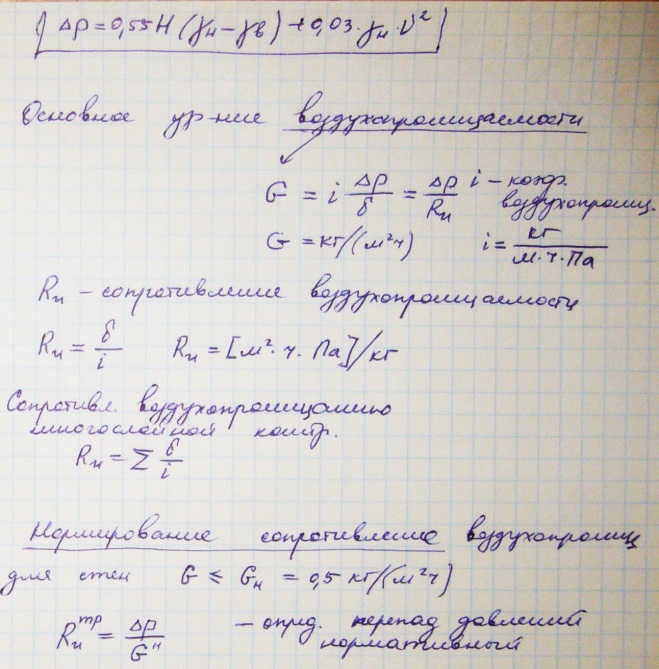 Δp = 0,55H (γн − γв) + 0,03·γн·V²
Основное ур-ние воздухопроницаемости
G = i Δp/δ = Δp/Rи i – коэф. воздухопрониц.
G = кг/(м²ч) i = кг/(м·ч·Па)
Rи – сопротивление воздухопроницаемости
Rи = δ/i Rи = [м²·ч·Па]/кг
Сопротивл. воздухопроницанию
многослойной констр.
Rи = Σ δ/i
Нормирование сопротивление воздухопрониц
для стен G ≤ Gн = 0,5 кг/(м²ч)
Rиᵐᵖ = Δp/Gᴴ – опред. перепад давлений
нормативный